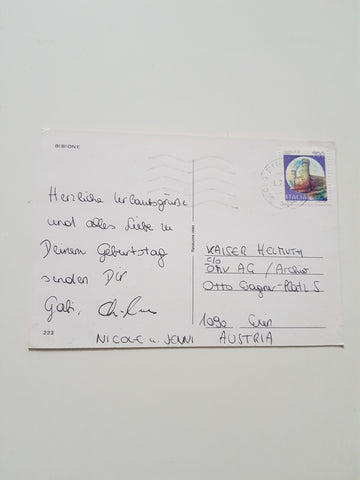 BIBIONE
ITALIA
Herzliche Urlaubsgrüße
und alles Liebe zu
Deinem Geburtstag
senden Dir
Gabi,
NICOLE u. JENNI
KAISER HELMUTH
c/o
ÖMV AG / Archiv
Otto Wagner-Platz 5
1090 Wien
AUSTRIA
223